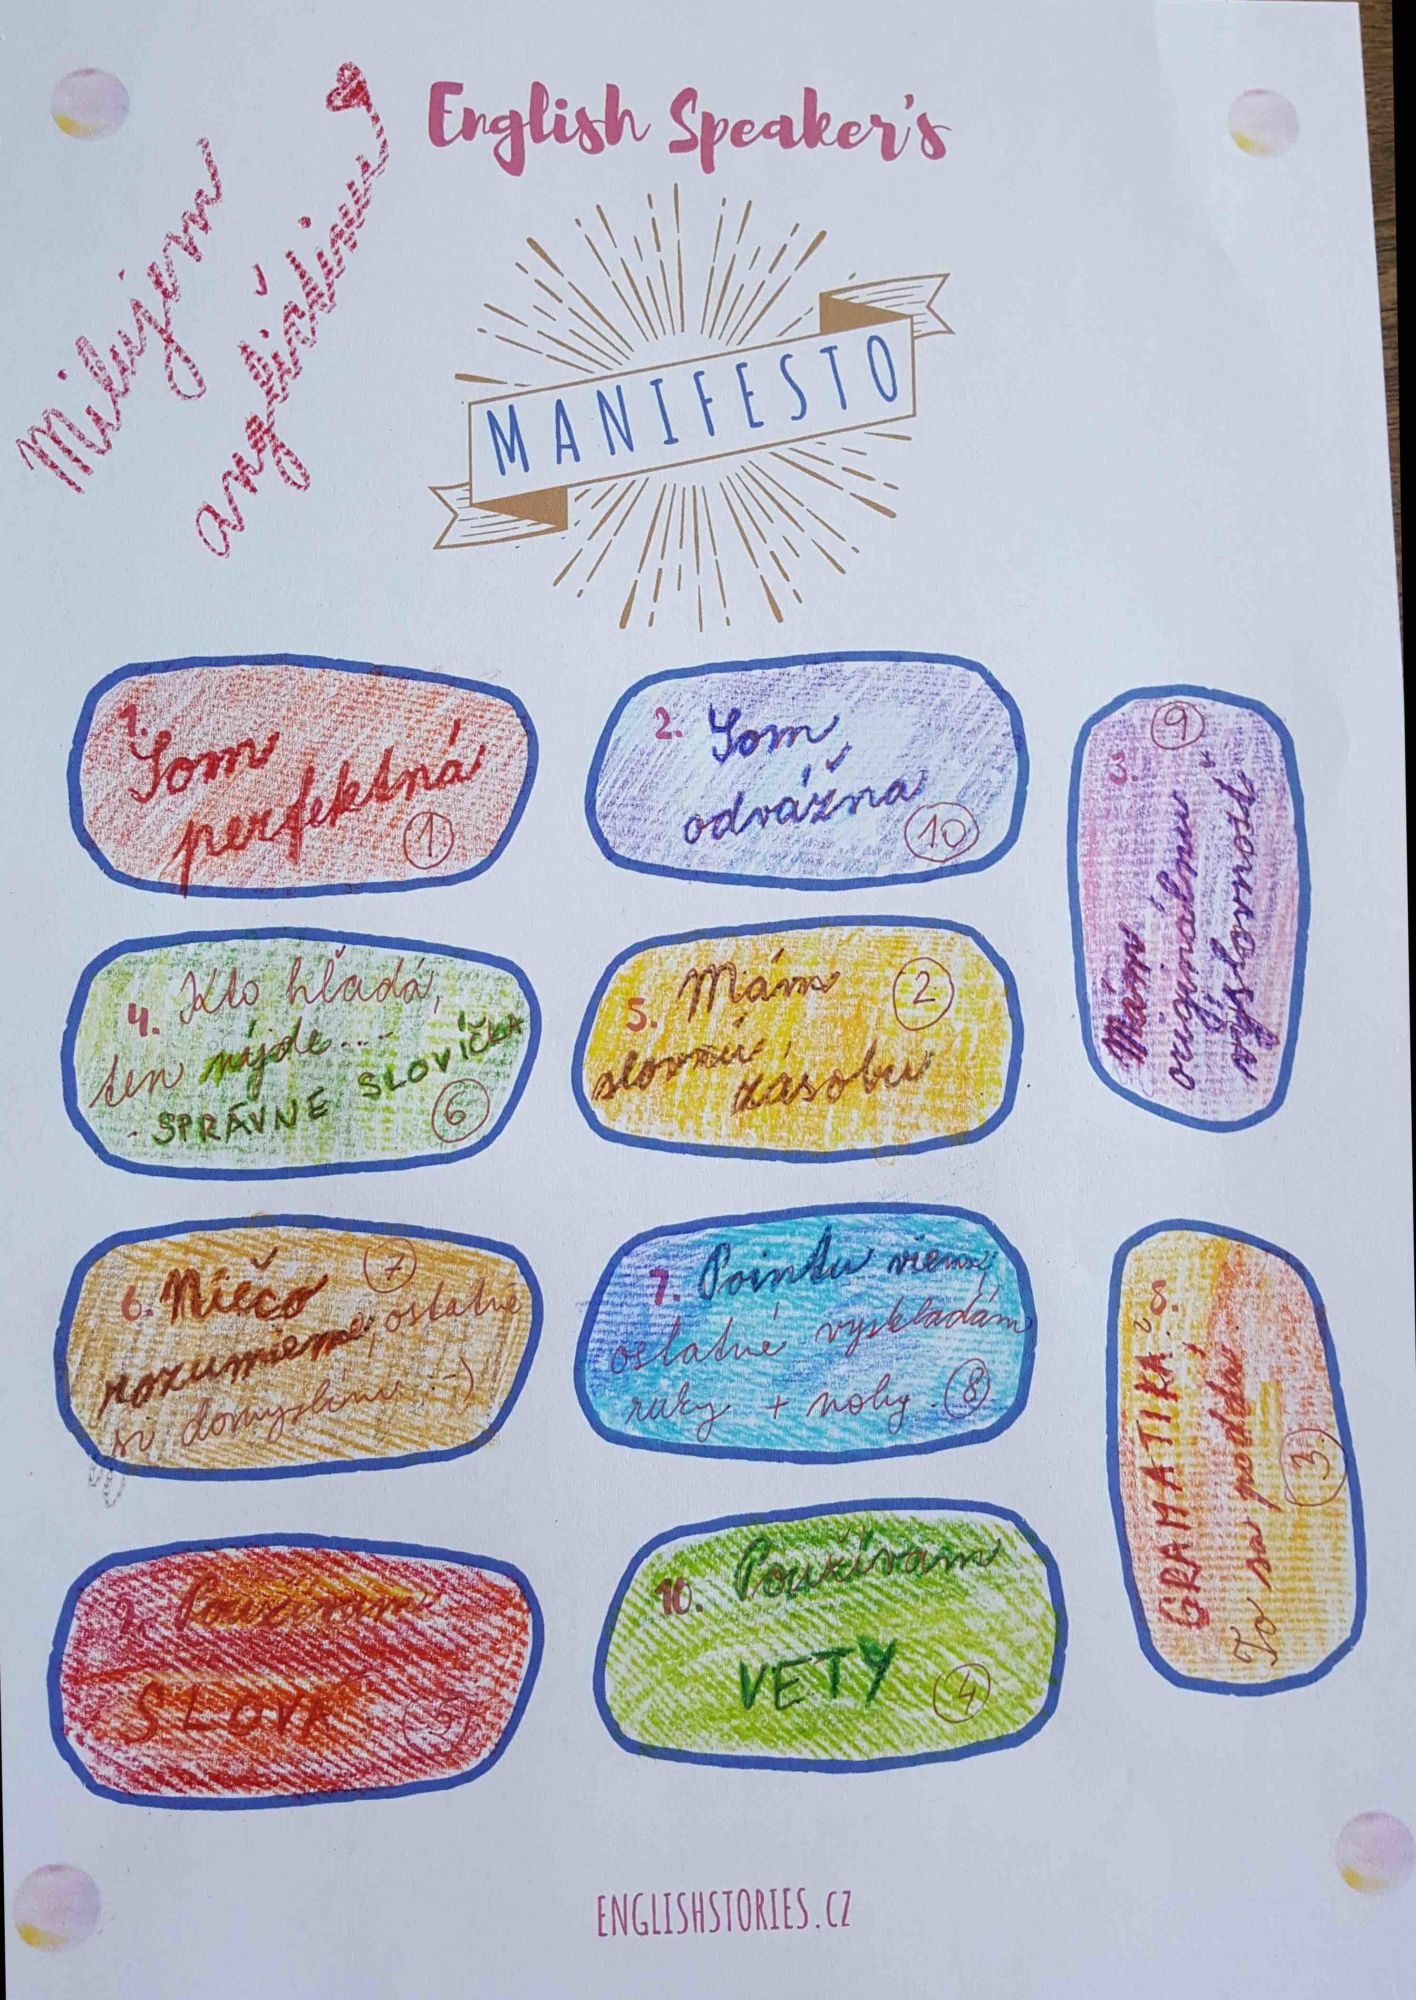 English Speaker's
MANIFESTO
Milujem
angličtinu
1.
Som
perfektná
1
2. Som
odvážna
10
3.
9
Mám
originálnu
výslovnosť
4. Kto hľadá,
ten nájde...
SPRÁVNE SLOVÍČKA
6
5. Mám
2
slovnú
zásobu
6. Niečo
7
rozumiem, ostatné
si domyslím :-)
7. Pointu viem,
ostatné vyskladám
ruky + nohy.
8
8.
GRAMATIKA?
To sa poddá.
3.
9. Používam
5
10. Používam
VETY
4
ENGLISHSTORIES.CZ